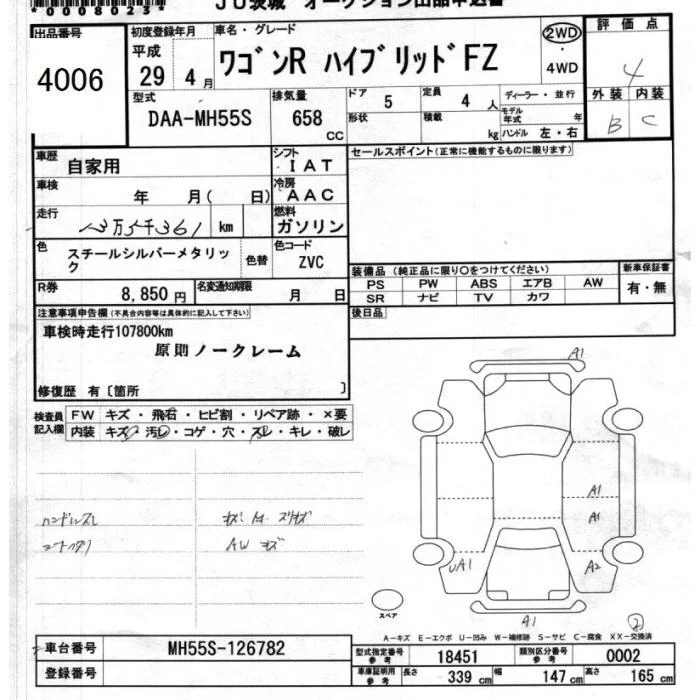 *0080823*
JU茨城 オークション出品申込書
出品番号 4006
初度登録年月 平成 29年 4月
車名・グレード ワゴンR ハイブリッドFZ
2WD・4WD
評価点 4
外装 B 内装 C
型式 DAA-MH55S
排気量 658 CC
ドア 5 定員 4 人
形状 積載 kg
ディーラー・並行
モデル年式 年
ハンドル 左・右
車歴 自家用
シフト IAT
セールスポイント(正常に機能するものに限ります)
車検 年 月( 日)
冷房 AAC
走行 km
燃料 ガソリン
色 スチールシルバーメタリック
色替
色コード ZVC
R券 8,850 円
名変通知期限 月 日
装備品 (純正品に限り○をつけてください)
新車保証書 有・無
PS PW ABS エアB AW
SR ナビ TV カワ
後日品
注意事項申告欄(不具合内容等は具体的に記入して下さい)
車検時走行107800km
原則ノークレーム
修復歴 有〔箇所 〕
検査員記入欄
FW キズ・飛石・ヒビ割・リペア跡・×要
内装 キズ・汚レ・コゲ・穴・スレ・キレ・破レ
ハンドルスレ
AW キズ
A1
A1
A1
UA1
A2
A1
2
スペア
A-キズ E-エクボ U-凹み W-補修跡 S-サビ C-腐食 XX-交換済
車台番号 MH55S-126782
登録番号
型式指定番号 参考 18451
類別区分番号 参考 0002
車庫証明用 参考 長さ 339 cm 幅 147 cm 高さ 165 cm